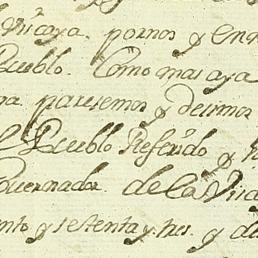 Vizcaya. por nos y en n
Pueblo. Como mas aya
paresemos y decimos
Pueblo Referido y
Governador de la Visc
nto y setenta y tres. y d